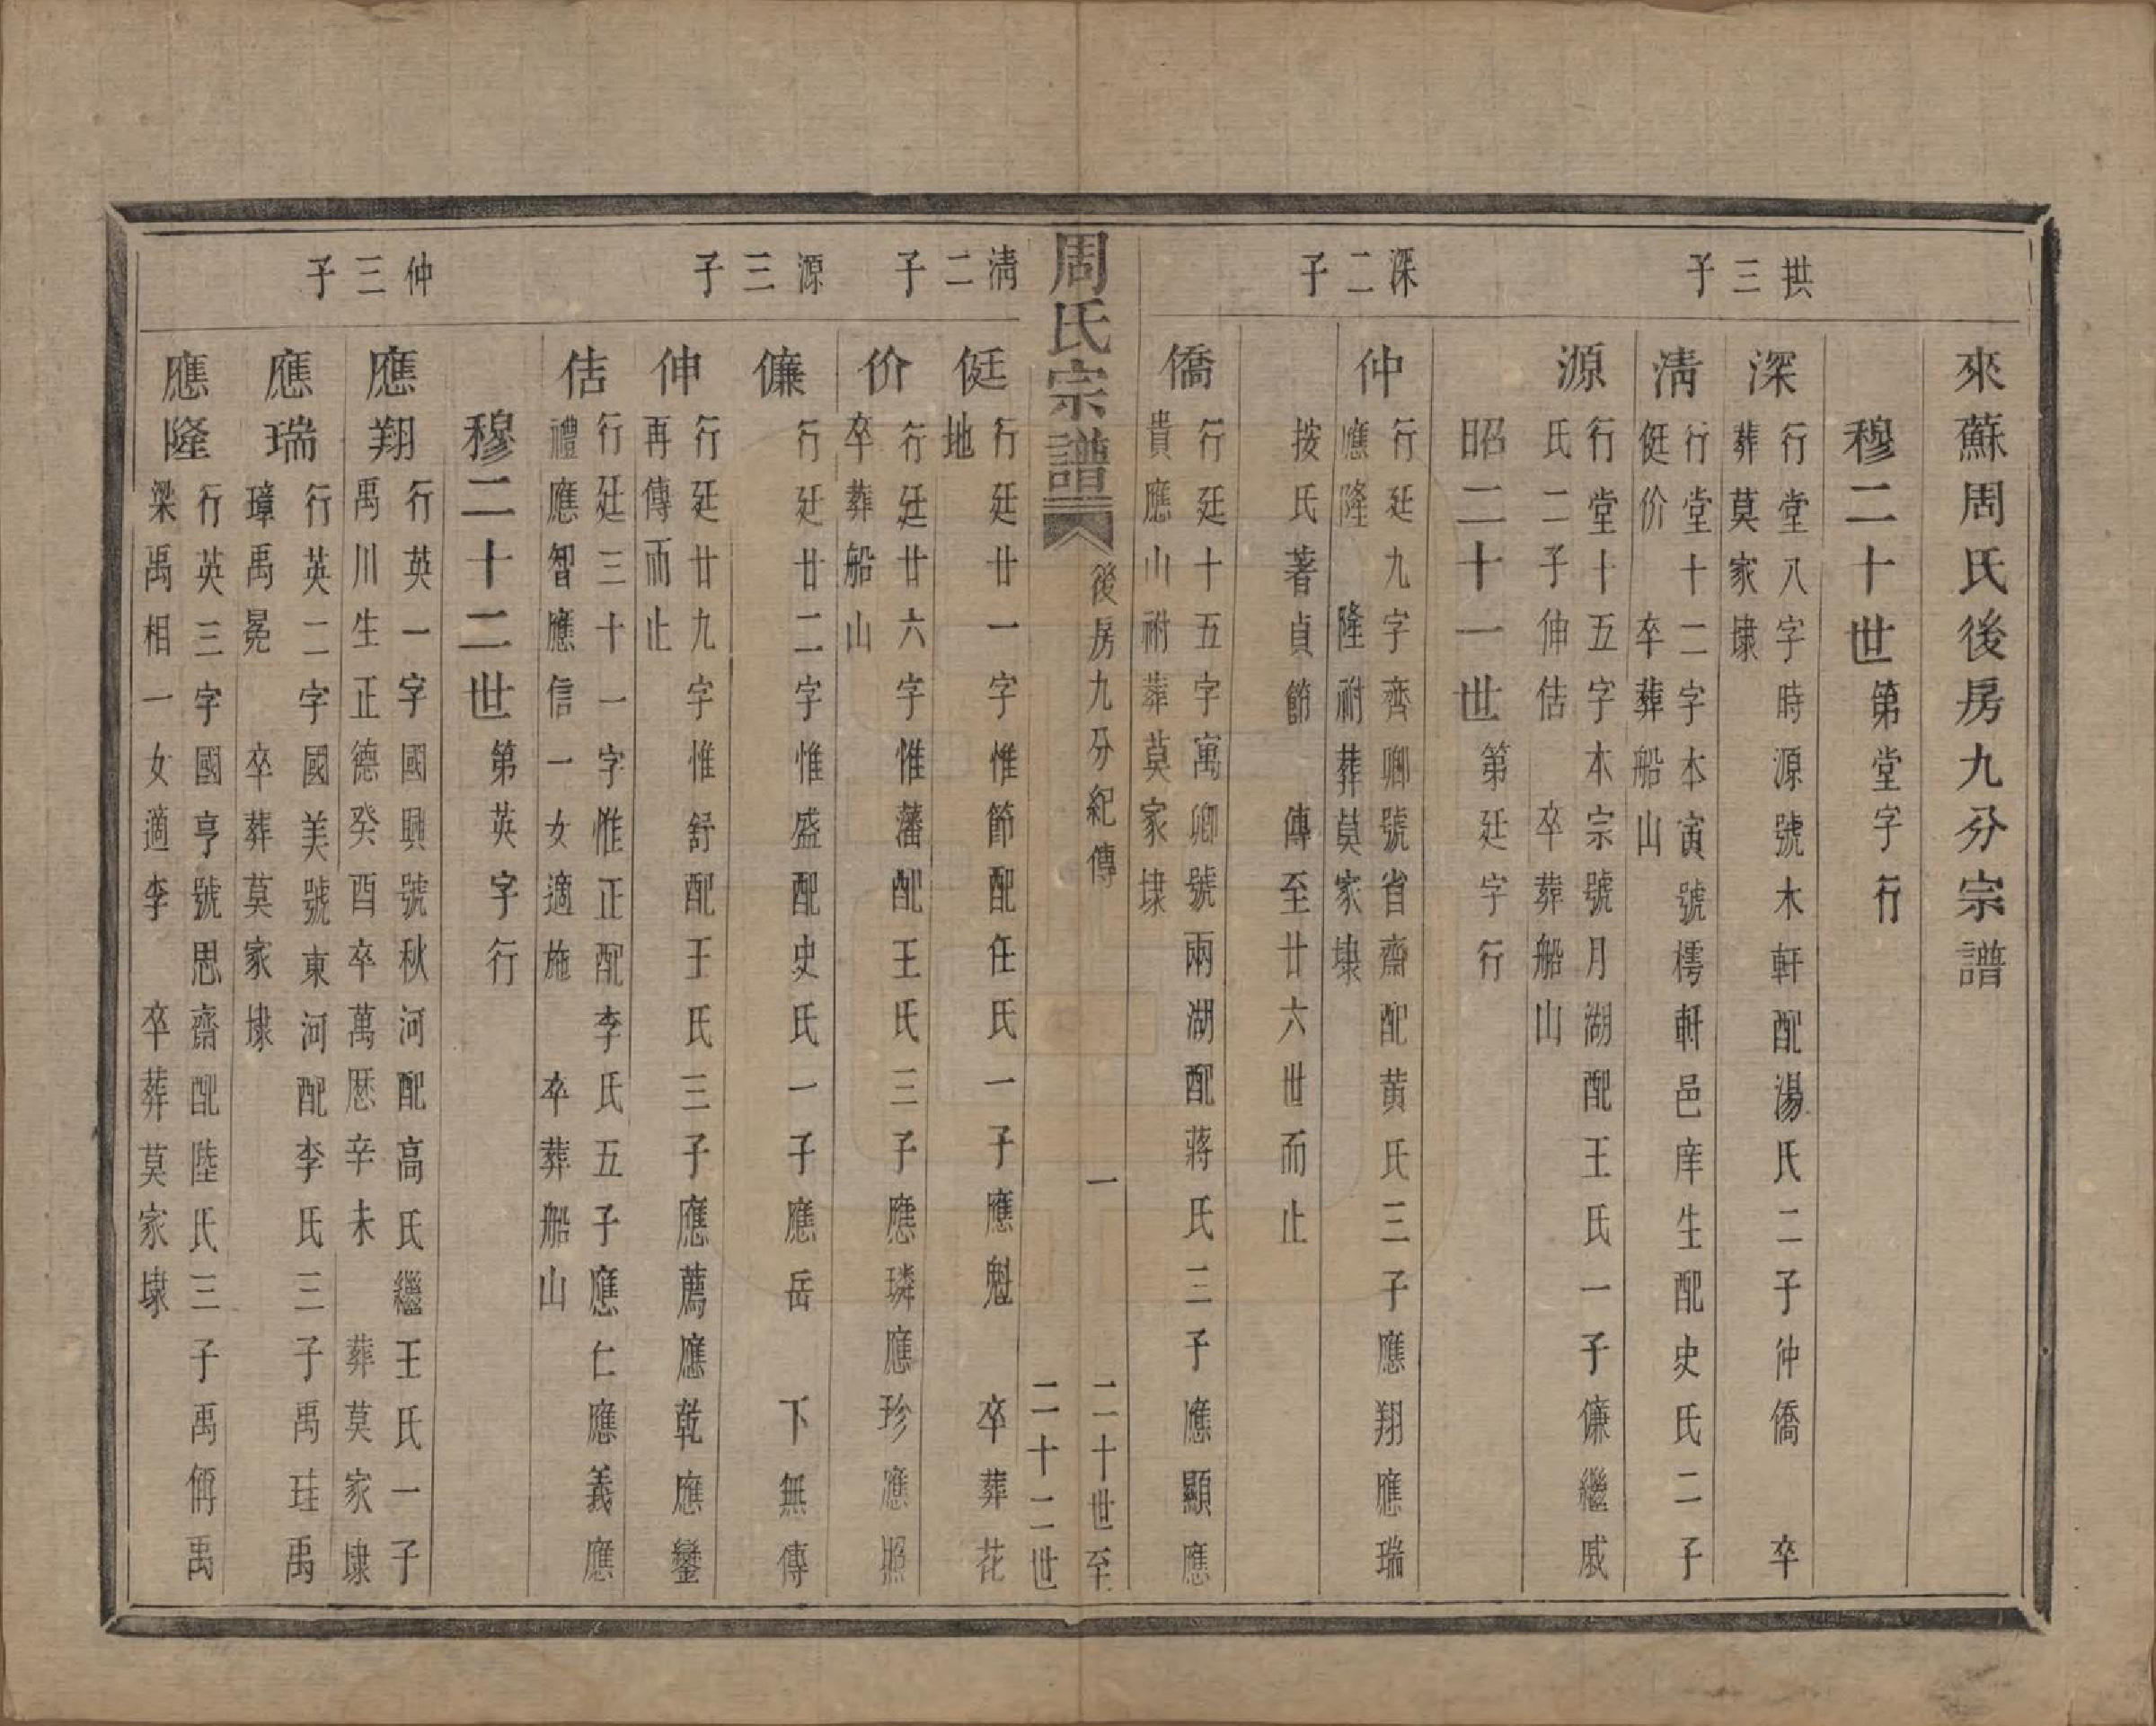 來蘇周氏後房九分宗譜
穆二十世第堂字行
拱三子
深 行堂八字時源號木軒配湯氏二子仲僑 卒
葬莫家埭
淸 行堂十二字本寅號樗軒邑庠生配史氏二子
侹价 卒葬船山
源 行堂十五字本宗號月湖配王氏一子㒎繼戚
氏二子伸佶 卒葬船山
昭二十一世第廷字行
深二子
仲 行廷九字齊卿號省齋配黄氏三子應翔應瑞
應隆 隆祔葬莫家埭
按氏著貞節 傳至廿六世而止
僑 行廷十五字寓卿號兩湖配蔣氏三子應顯應
貴應山祔葬莫家埭
周氏宗譜 後房九分紀傳 一 二十世至
二十二世
淸二子
侹 行廷廿一字惟節配任氏一子應魁 卒葬花
地
价 行廷廿六字惟藩配王氏三子應璘應珍應照
卒葬船山
源三子
㒎 行廷廿二字惟盛配史氏一子應岳 下無傳
伸 行廷廿九字惟舒配于氏三子應薦應乾應鑾
再傳而止
佶 行廷三十一字惟正配李氏五子應仁應義應
禮應智應信一女適施 卒葬船山
穆二十二世第英字行
仲三子
應翔 行英一字國興號秋河配高氏繼王氏一子
禹川生正德癸酉卒萬厯辛未 葬莫家埭
應瑞 行英二字國美號東河配李氏三子禹珪禹
璋禹冕 卒葬莫家埭
應隆 行英三字國亨號思齋配陸氏三子禹偁禹
梁禹相一女適李 卒葬莫家埭